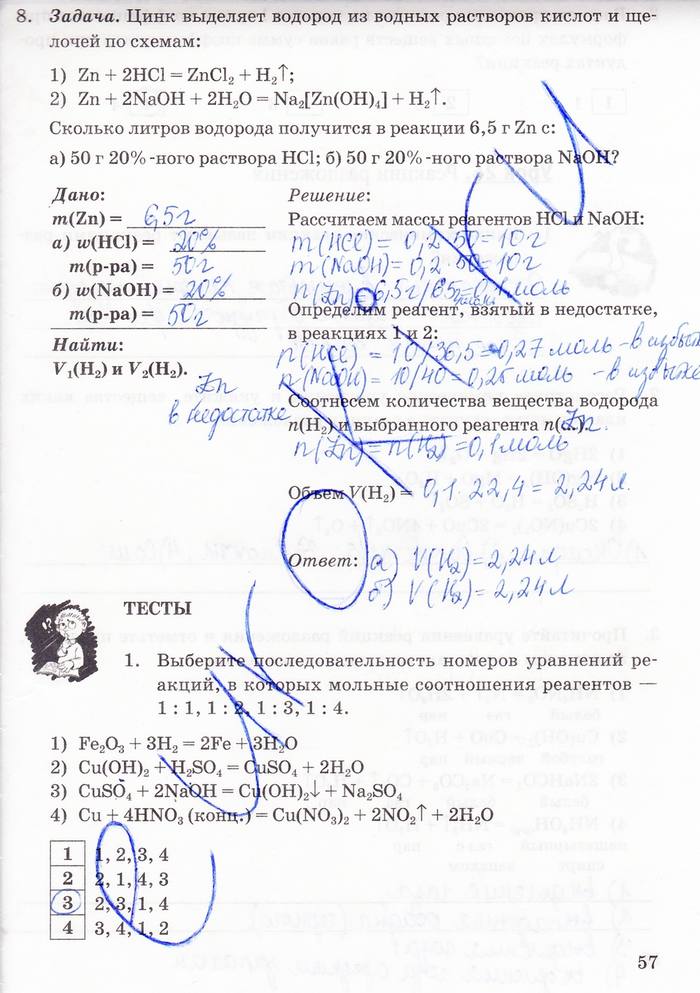 8. Задача. Цинк выделяет водород из водных растворов кислот и ще-
лочей по схемам:
1) Zn + 2HCl = ZnCl₂ + H₂↑;
2) Zn + 2NaOH + 2H₂O = Na₂[Zn(OH)₄] + H₂↑.
Сколько литров водорода получится в реакции 6,5 г Zn с:
а) 50 г 20% -ного раствора HCl; б) 50 г 20% -ного раствора NaOH?
Дано:
m(Zn) = 6,5 г
а) w(HCl) = 20%
m(р-ра) = 50 г
б) w(NaOH) = 20%
m(р-ра) = 50 г
Найти:
V₁(H₂) и V₂(H₂).
Zn
в недостатке
Решение:
Рассчитаем массы реагентов HCl и NaOH:
m(HCl) = 0,2·50 = 10 г
m(NaOH) = 0,2·50 = 10 г
n(Zn) = 6,5 г/65 г/моль = 0,1 моль
Определим реагент, взятый в недостатке,
в реакциях 1 и 2:
n(HCl) = 10/36,5 = 0,27 моль - в избыт
n(NaOH) = 10/40 = 0,25 моль - в избытке
Соотнесем количества вещества водорода
n(H₂) и выбранного реагента n(...) Zn.
n(Zn) = n(H₂) = 0,1 моль
Объем V(H₂) = 0,1·22,4 = 2,24 л.
Ответ: а) V(H₂) = 2,24 л
б) V(H₂) = 2,24 л
ТЕСТЫ
1. Выберите последовательность номеров уравнений ре-
акций, в которых мольные соотношения реагентов —
1 : 1, 1 : 2, 1 : 3, 1 : 4.
1) Fe₂O₃ + 3H₂ = 2Fe + 3H₂O
2) Cu(OH)₂ + H₂SO₄ = CuSO₄ + 2H₂O
3) CuSO₄ + 2NaOH = Cu(OH)₂↓ + Na₂SO₄
4) Cu + 4HNO₃ (конц.) = Cu(NO₃)₂ + 2NO₂↑ + 2H₂O
1 1, 2, 3, 4
2 2, 1, 4, 3
3 2, 3, 1, 4
4 3, 4, 1, 2
57